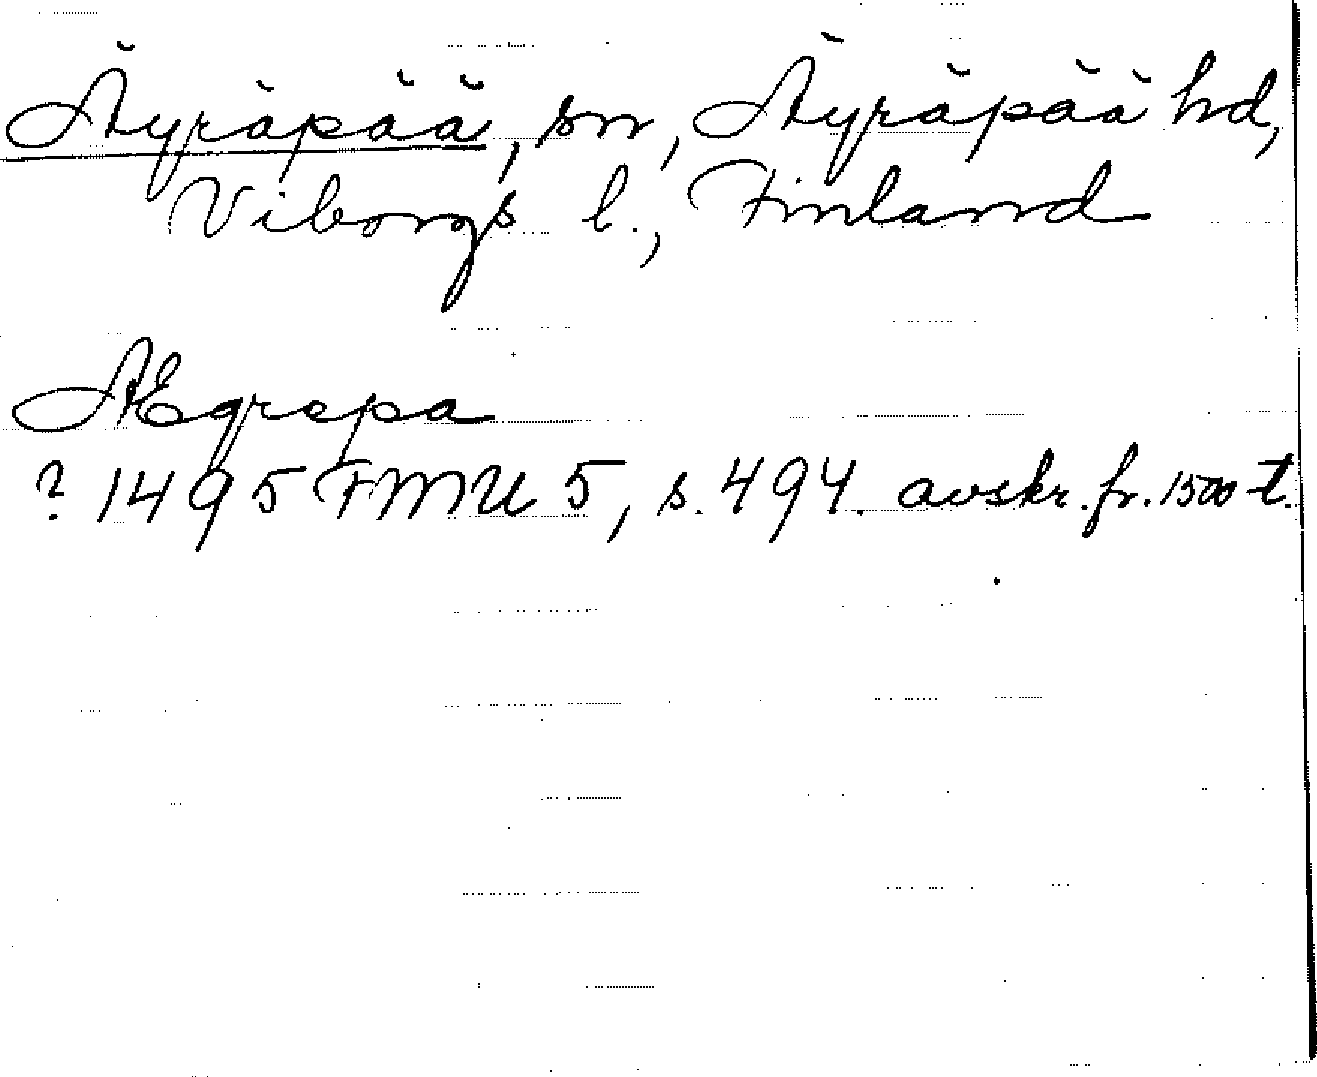 Äyräpää, sn, Äyräpää hd,
Viborgs l., Finland
Ægrepa
? 1495 FMU 5, s. 494. avskr. fr. 1500 t.